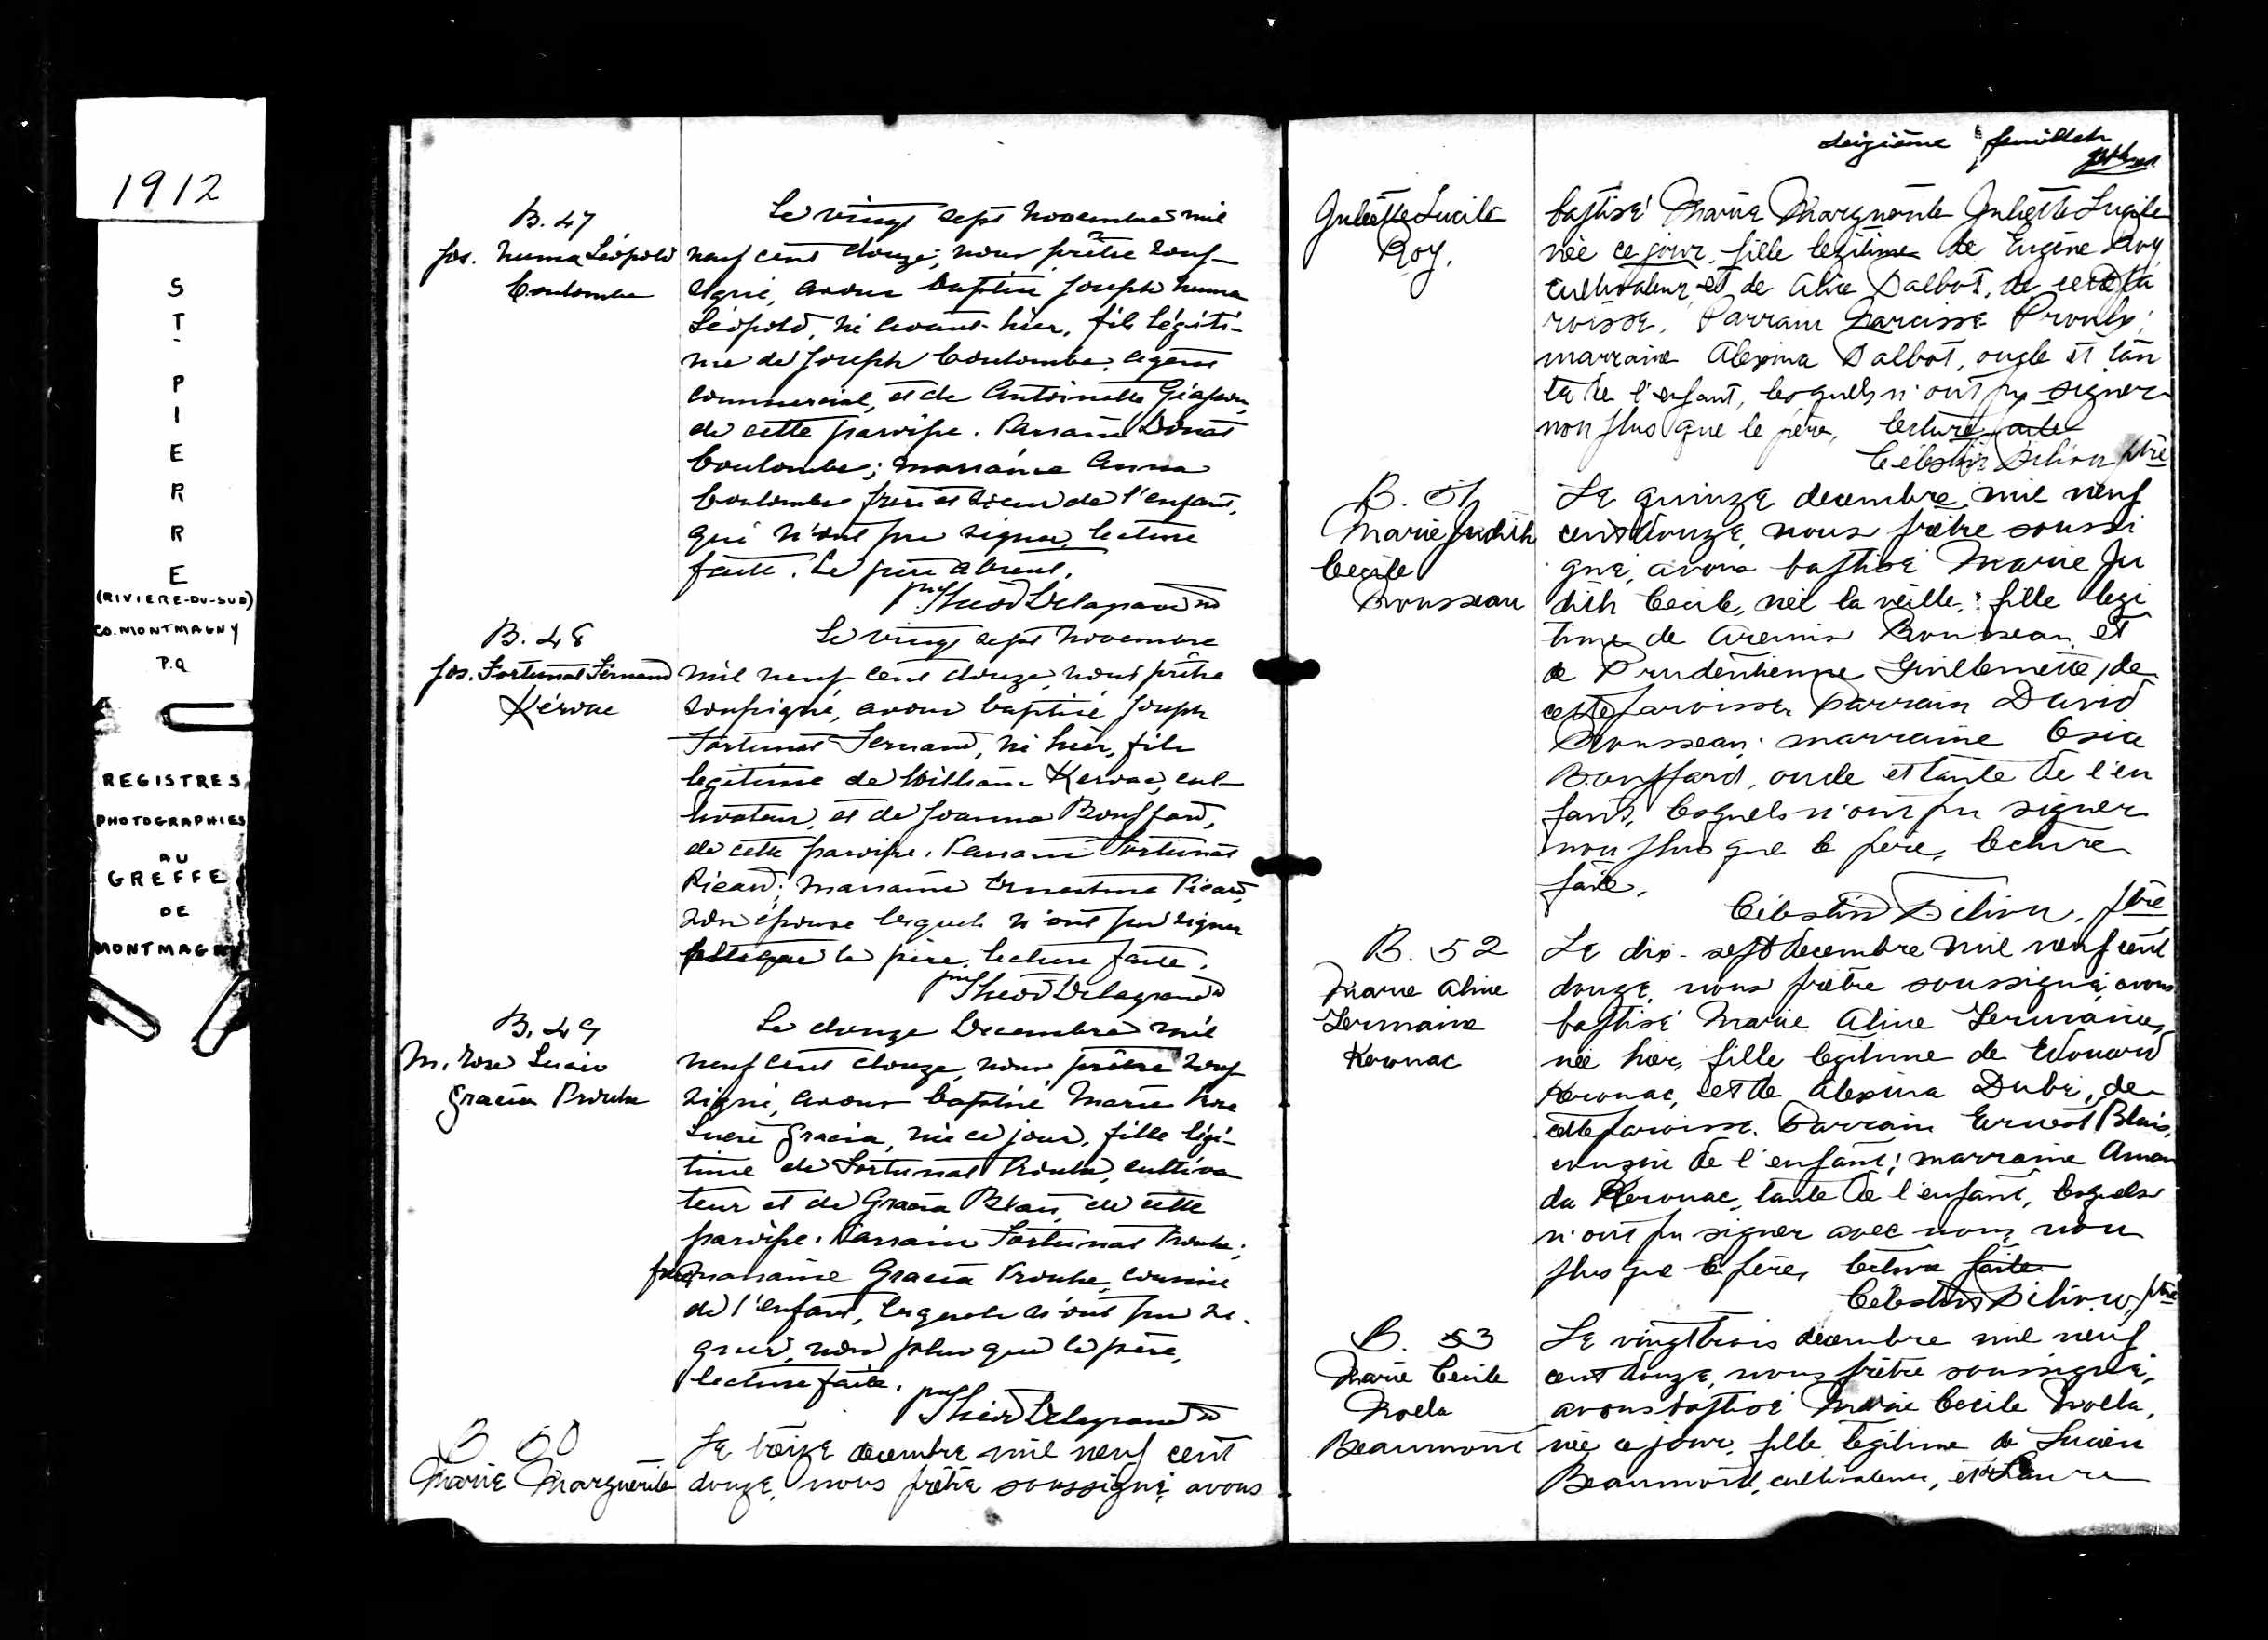 1912
ST-PIERRE
(RIVIERE-DU-SUD)
CO. MONTMAGNY
P.Q
REGISTRES
PHOTOGRAPHIES
AU
GREFFE
DE
MONTMAGNY
B. 47
Jos. Numa Léopold
Coulombe
Le vingt sept Novembre mil
neuf cent douze, nous prêtre sous-
signé, avons baptisé Joseph Numa
Léopold, né avant-hier, fils légiti-
me de Joseph Coulombe, agent
commercial, et de Antoinette Giasson,
de cette paroisse. Parrain Donat
Coulombe; marraine Anna
Coulombe frère et soeur de l'enfant,
qui n'ont pu signer, lecture
faite. Le père absent.
ptre Theod Delagrave
B. 48
Jos. Fortunat Fernand
Kérouac
Le vingt sept Novembre
mil neuf cent douze, nous prêtre
soussigné, avons baptisé Joseph
Fortunat Fernand, né hier, fils
légitime de William Kerouac, cul-
tivateur, et de Joanna Bouffard,
de cette paroisse. Parrain Fortunat
Picard; marraine Ernestine Picard,
son épouse lesquels n'ont pu signer
le père, lecture faite.
ptre Theod Delagrave
B. 49
M. Rose Lucie
Gracia Proulx
Le douze Decembre mil
neuf cent douze, nous prêtre sous
signé, avons baptisé Marie Rose
Lucie Gracia, née ce jour, fille légi-
time de Fortunat Proulx, cultiva
teur et de Gracia Blais, de cette
paroisse. Parrain Fortunat Proulx;
marraine Gracia Proulx, cousine
de l'enfant, lesquels n'ont pu si-
gner, non plus que le père,
lecture faite.
ptre Theod Delagrave
B 50
Marie Marguerite
Le treize decembre mil neuf cent
douze, nous prêtre soussigné avons
seizième feuillet
Juliette Lucile
Roy.
baptisé Marie Marguerite Juliette Lucile
née ce jour, fille legitime de Eugène Roy,
cultivateur, et de Alice Dalbot, de cette pa
roisse. Parrain Narcisse Proulx;
marraine Alexina Dalbot, oncle et tan
te de l'enfant, lesquels n'ont pu signer
non plus que le père, lecture faite
Célestin ptre
B. 51
Marie Judith
Cecile
Rousseau
Le quinze decembre mil neuf
cent douze, nous prêtre soussi
gné, avons baptisé Marie Ju
dith Cecile, née la veille, fille legi
time de Rousseau et
de Prudentienne Guillemette, de
cette paroisse. Parrain David
Rousseau; marraine
Bouffard, oncle et tante de l'en
fant, lesquels n'ont pu signer
non plus que le père, lecture
faite.
Célestin ptre
B. 52
Marie Aline
Germaine
Kerouac
Le dix-sept decembre mil neuf cent
douze, nous prêtre soussigné, avons
baptisé Marie Aline Germaine,
née hier, fille legitime de Edouard
Kerouac, et de Alexina Dubé, de
cette paroisse. Parrain Ernest Blais,
cousin de l'enfant; marraine Aman
da Kerouac, tante de l'enfant, lesquels
n'ont pu signer avec nous non
plus que le père, lecture faite
Célestin ptre
B. 53
Marie Cecile
Noella
Beaumont
Le vingt trois decembre mil neuf
cent douze, nous prêtre soussigné,
avons baptisé Marie Cecile Noella,
née ce jour, fille legitime de Lucien
Beaumont, cultivateur, et de Laura